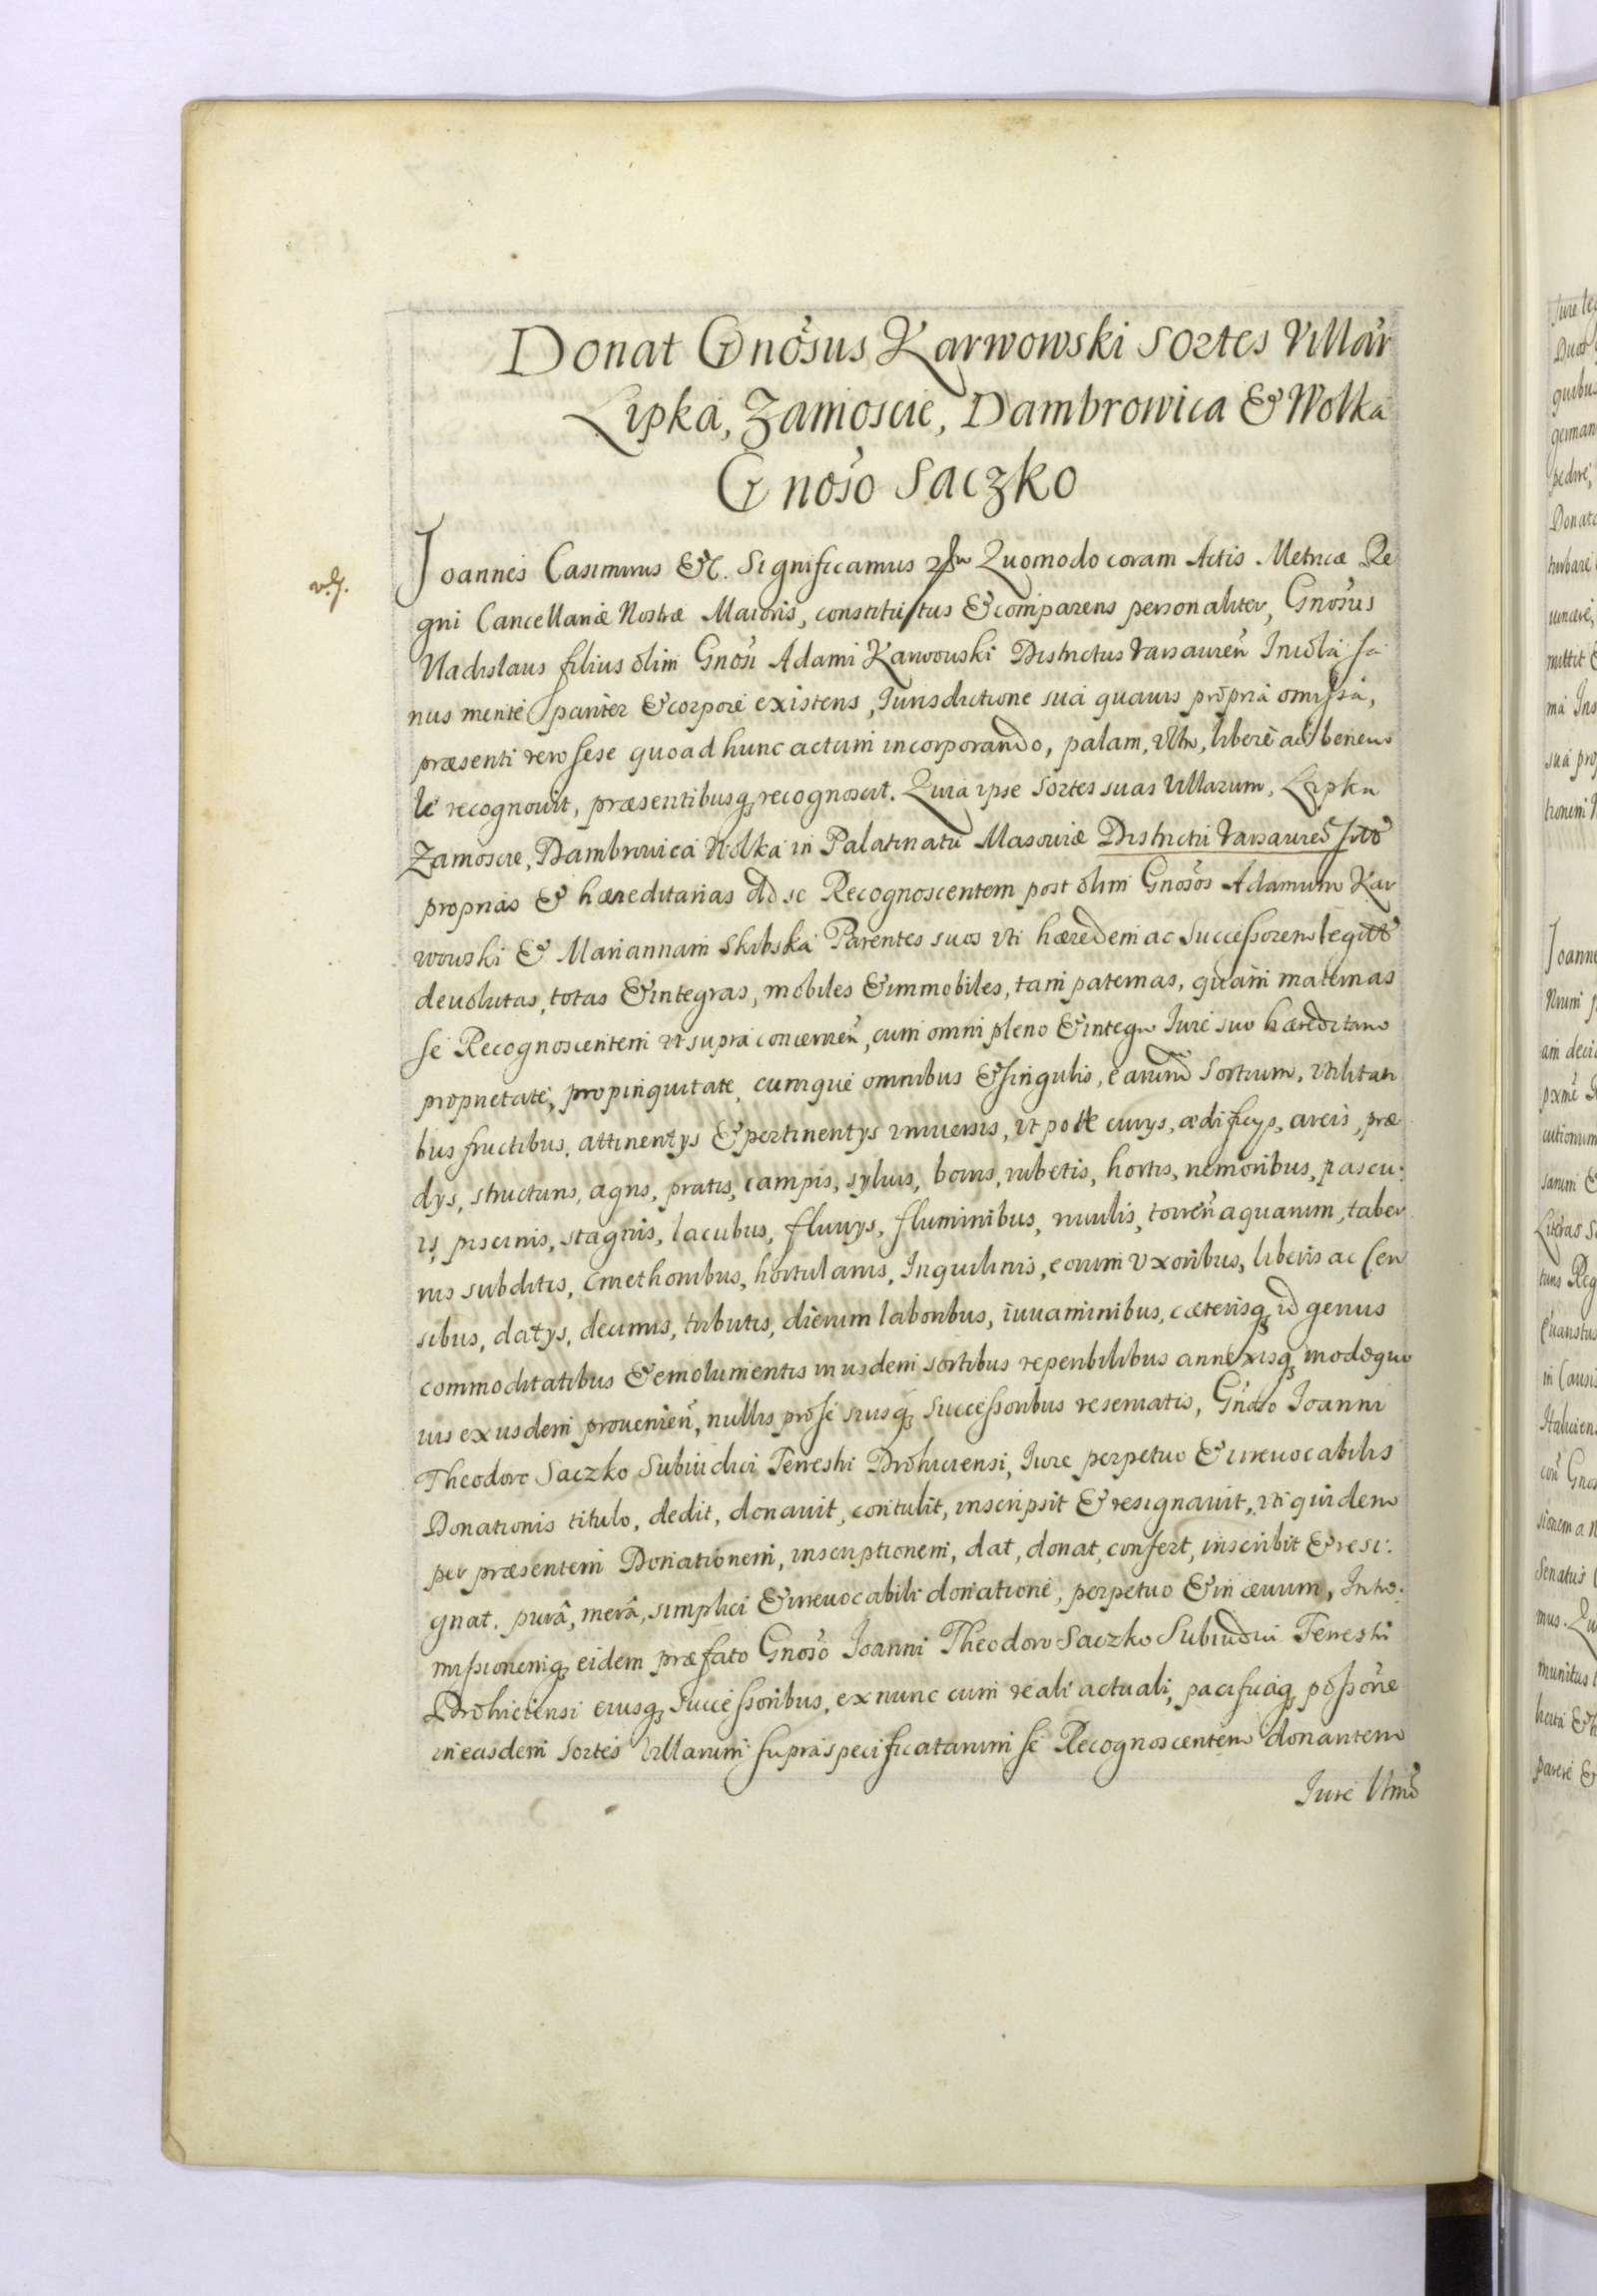 Donat Gnosus Karwowski sortes Villar
Lipka, Zamoscie, Dambrowica & Wolka
Gnoso Saczko
Joannes Casimirus &c. Significamus Quomodo coram Actis Metricæ Re
v.g.
gni Cancellariæ Nostræ Maioris, constitutus & comparens personaliter, Gnosus
Vladislaus filius olim Gnosi Adami Karwouski Districtus Varsauien Incola sa
nus mente pariter & corpore existens, Iurisdictione sua quauis propria omissa,
præsenti vero sese quoad hunc actum incorporando, palam, vltro, libere ac beneuo
le recognouit, præsentibusq recognoscit. Quia ipse sortes suas Villarum, Lipka
Zamoscie, Dambrowica Wolka in Palatinatu Masouiæ Districtu Varsauien sitas
proprias & hæreditarias ad se Recognoscentem post olim Gnosos Adamum Kar
wouski & Mariannam Skibska Parentes suos vti hæredem ac Successorem legitt
deuolutas, totas & integras, mobiles & immobiles, tam paternas, quam maternas
se Recognoscentem vt supra concernen, cum omni pleno & integro Iure suo hæreditario
proprietate, propinquitate, cumque omnibus & singulis, earund sortium, vtilitati
bus fructibus, attinentys & pertinentys vniuersis, vt pote curys, ædificys, areis, præ
dys, structuris, agris, pratis, campis, syluis, boris, rubetis, hortis, nemoribus, pascu.
is, piscinis, stagnis, lacubus, fluuys, fluminibus, riuulis, torren aquarum, taber
nis subditis, Cmethonibus, hortulanis, Inquilinis, eorum vxoribus, liberis ac Cen
sibus, datys, decimis, tributis, dierum laboribus, iuuaminibus, cæterisq id genus
commoditatibus & emolumentis in ijsdem sortibus reperibilibus annexisq modoquo
uis ex ijsdem prouenien, nullis pro se suisq Successoribus reseruatis, Gnoso Joanni
Theodoro Saczko Subiudici Terrestri Drohiciensi, Iure perpetuo & irreuocabilis
Donationis titulo, dedit, donauit, contulit, inscripsit & resignauit, vti quidem
per præsentem Donationem, inscriptionem, dat, donat, confert, inscribit & resi.
gnat. purâ, merâ, simplici & irreuocabili donatione, perpetuo & in æuum, Intro.
missionemq eidem præfato Gnoso Joanni Theodoro Saczko Subiudici Terrestri
Drohiciensi eiusq Successoribus, ex nunc cum reali actuali, pacificaq possone
in easdem sortes Villarum supraspecificatarum se Recognoscentem donantem
Iure